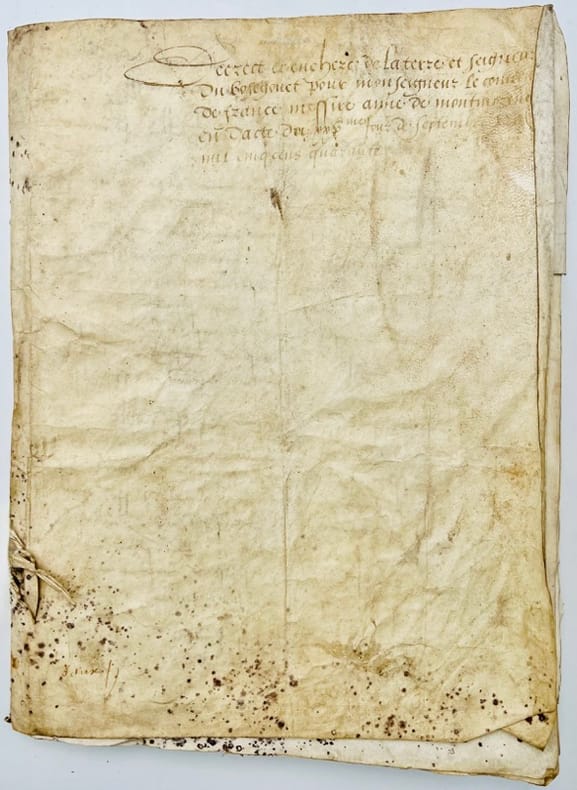 Decrect et enchere de la terre et seigneu
Du boysgouet pour monseigneur le conne
de france messire anne de montmorancy
en dacte du xxx mes jour de septembre
mil cinq cens quarante